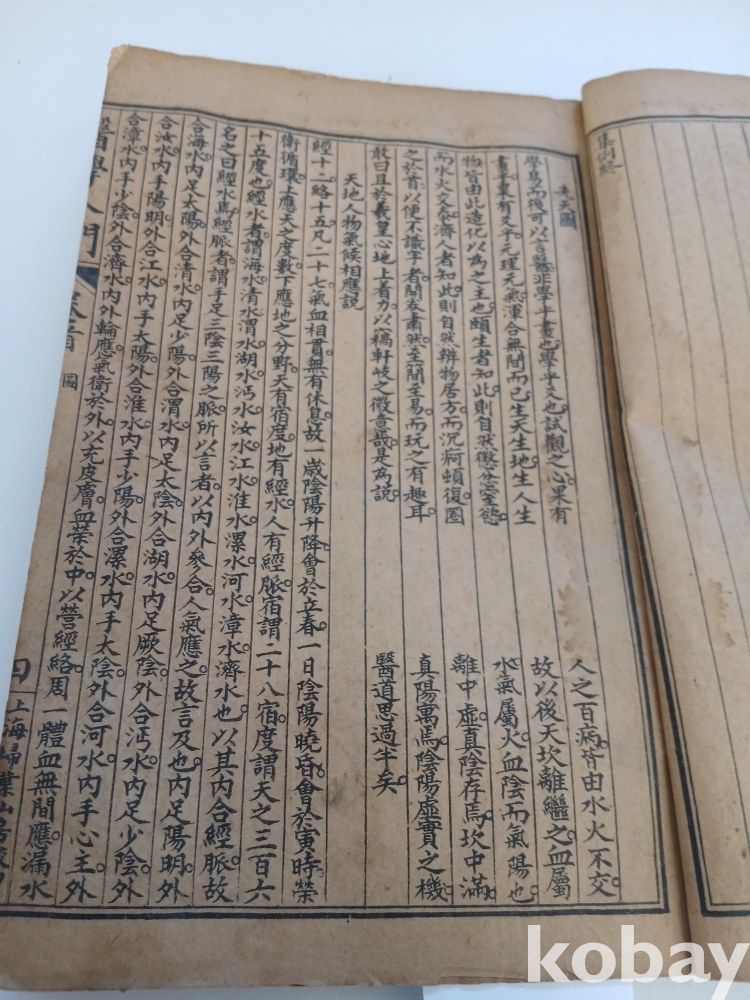 集例終
先天圖
學易而後可以言醫非學乎畫也學乎爻也試觀之心果有
畫乎畫有爻乎元理元氣渾合無間而已生天生地生人生
物皆由此造化以為之主也頤生者知此則自然懲忿窒慾
而水火交泰濟人者知此則自然辨物居方而沉痾頓復圖
之於首以便不識字者開卷肅然至簡至易而玩之有趣耳
敢曰且於羲皇心地上着力以竊軒岐之微意哉是為說
人之百病皆由水火不交
故以後天坎離繼之血屬
水氣屬火血陰而氣陽也
離中虛真陰存焉坎中滿
真陽寓焉陰陽虛實之機
醫道思過半矣
天地人物氣候相應說
經十二絡十五凡二十七氣血相貫無有休息故一歲陰陽升降會於立春一日陰陽曉昏會於寅時榮
衛循環上應天之度數下應地之分野天有宿度地有經水人有經脈宿謂二十八宿度謂天之三百六
十五度也經水者謂海水清水渭水湖水沔水汝水江水淮水漯水河水漳水濟水也以其內合經脈故
名之曰經水焉經脈者謂手足三陰三陽之脈所以言者以內外參合人氣應之故言及也內足陽明外
合海水內足太陽外合清水內足少陽外合渭水內足太陰外合湖水內足厥陰外合沔水內足少陰外
合汝水內手陽明外合江水內手太陽外合淮水內手少陽外合漯水內手太陰外合河水內手心主外
合漳水內手少陰外合濟水內外輪應氣衛於外以充皮膚血榮於中以營經絡周一體血無間應漏水
醫學入門 卷首 圖 四 上海掃葉山房
kobay